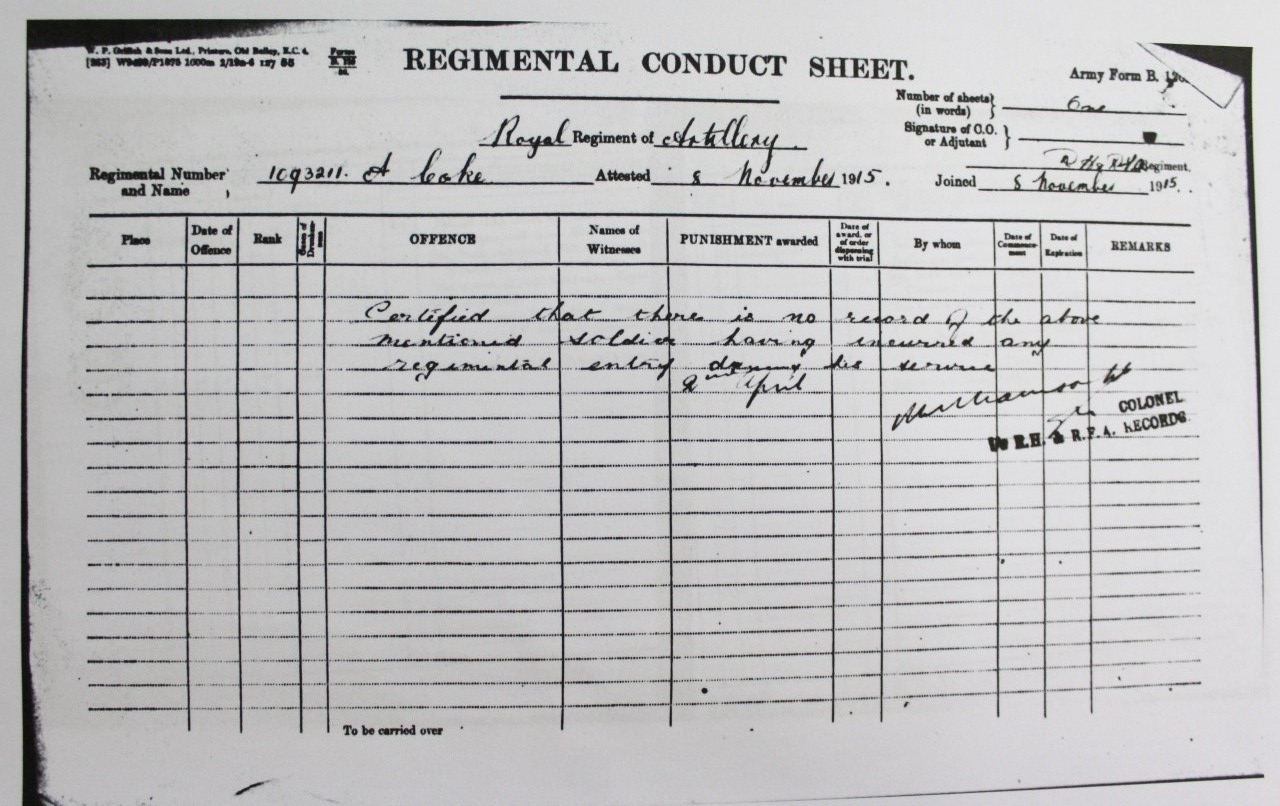 W. P. Griffith & Sons Ltd., Printers, Old Bailey, E.C. 4.
1000m 2/19
Forms
REGIMENTAL CONDUCT SHEET.
Army Form B.
Number of sheets (in words) One
Signature of C.O. or Adjutant
Royal Regiment of Artillery.
Regiment.
Regimental Number and Name, 1093211. A Coke Attested 8 November 1915. Joined 8 November 1915.
Place Date of Offence Rank OFFENCE Names of Witnesses PUNISHMENT awarded Date of award, or of order dispensing with trial By whom Date of Commencement Date of Expiration REMARKS
Certified that there is no record of the above
mentioned soldier having incurred any
regimental entry during his service
2nd April
COLONEL
R.H. & R.F.A. RECORDS.
To be carried over